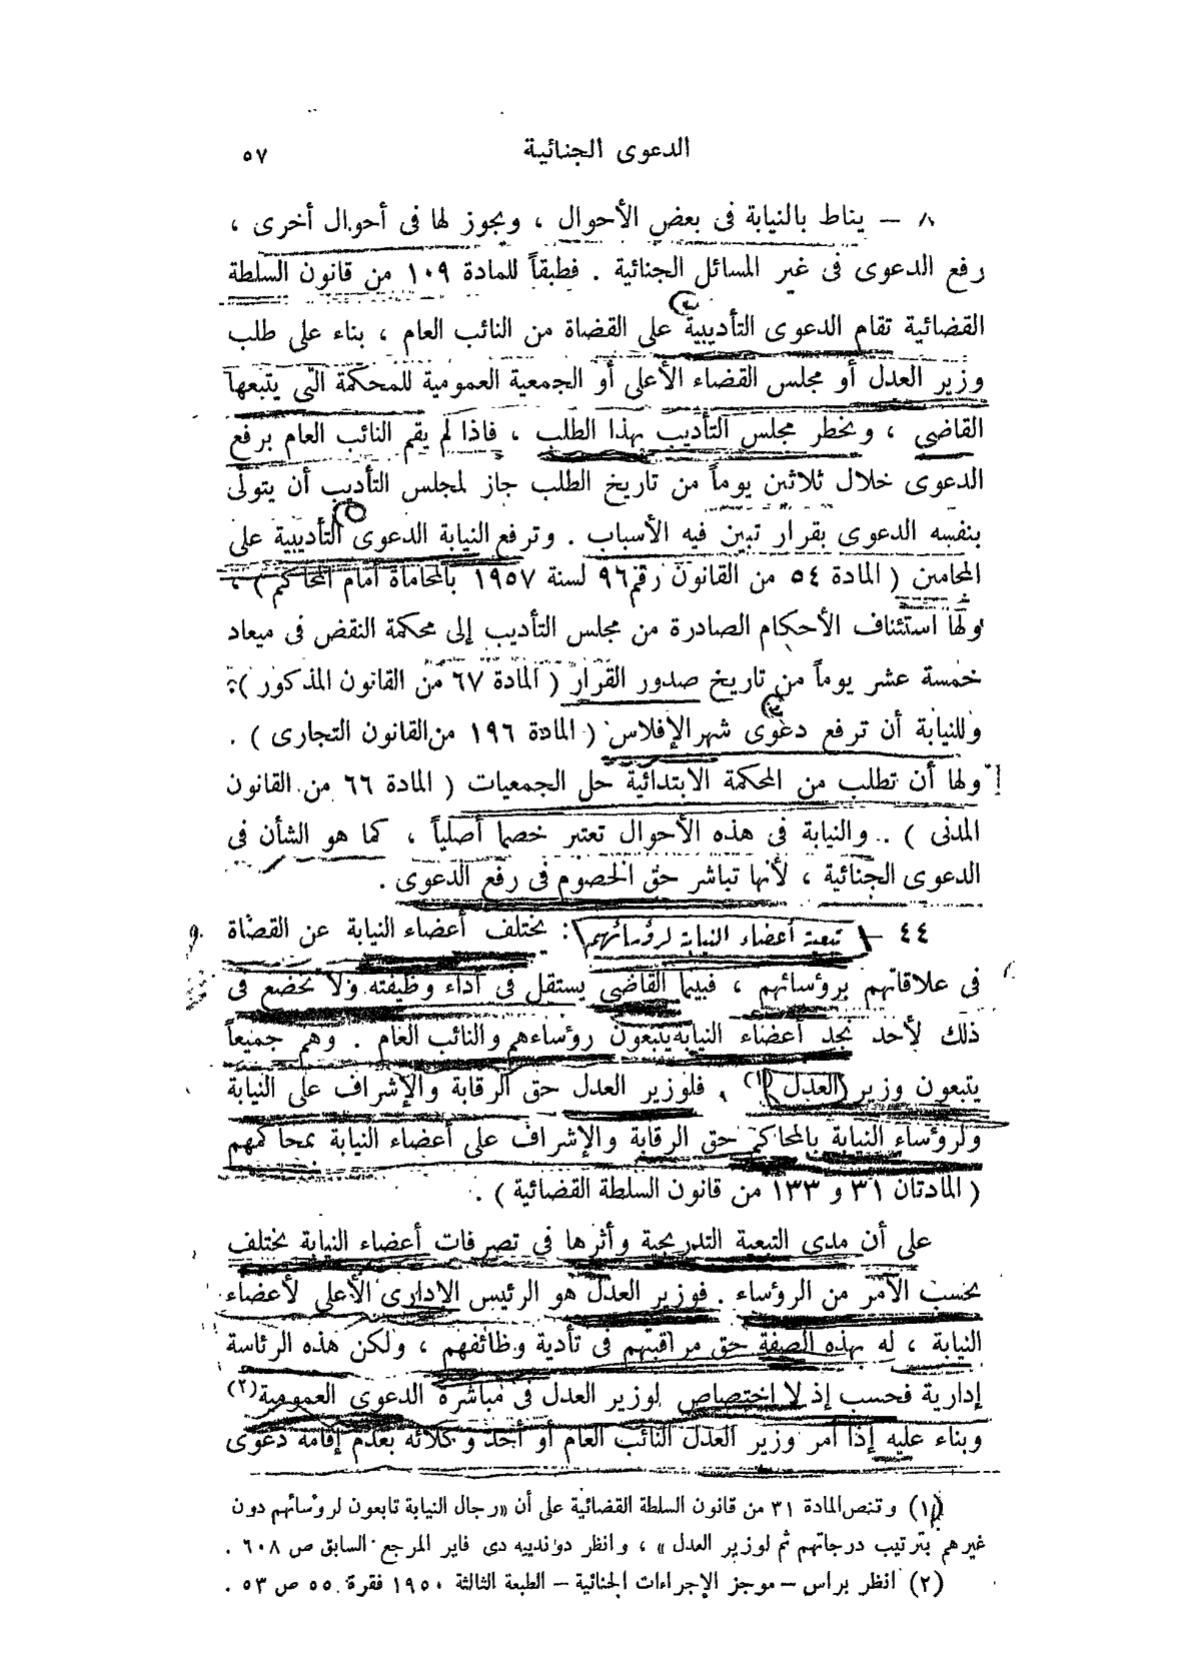 الدعوى الجنائية ٥٧
٨ — يناط بالنيابة فى بعض الأحوال ، ويجوز لها فى أحوال أخرى ،
رفع الدعوى فى غير المسائل الجنائية . فطبقاً للمادة ١٠٩ من قانون السلطة
القضائية تقام الدعوى التأديبية على القضاة من النائب العام ، بناء على طلب
وزير العدل أو مجلس القضاء الأعلى أو الجمعية العمومية للمحكمة التى يتبعها
القاضى ، ويخطر مجلس التأديب بهذا الطلب ، فاذا لم يقم النائب العام برفع
الدعوى خلال ثلاثين يوماً من تاريخ الطلب جاز لمجلس التأديب أن يتولى
بنفسه الدعوى بقرار تبين فيه الأسباب . وترفع النيابة الدعوى التأديبية على
المحامين ( المادة ٥٤ من القانون رقم ٩٦ لسنة ١٩٥٧ بالمحاماة أمام المحاكم ) ،
ولها استئناف الأحكام الصادرة من مجلس التأديب إلى محكمة النقض فى ميعاد
خمسة عشر يوماً من تاريخ صدور القرار ( المادة ٦٧ من القانون المذكور ) ؛
وللنيابة أن ترفع دعوى شهر الإفلاس ( المادة ١٩٦ من القانون التجارى ) .
ولها أن تطلب من المحكمة الابتدائية حل الجمعيات ( المادة ٦٦ من القانون
المدنى ) .. والنيابة فى هذه الأحوال تعتبر خصما أصلياً ، كما هو الشأن فى
الدعوى الجنائية ، لأنها تباشر حق الخصوم فى رفع الدعوى .
٤٤ — تبعية أعضاء النيابة لرؤسائهم : يختلف أعضاء النيابة عن القضاة
فى علاقاتهم برؤسائهم ، فبينما القاضى يستقل فى أداء وظيفته ولا يخضع فى
ذلك لأحد نجد أعضاء النيابة يتبعون رؤساءهم والنائب العام . وهم جميعاً
يتبعون وزير العدل (١) . فلوزير العدل حق الرقابة والإشراف على النيابة
ولرؤساء النيابة بالمحاكم حق الرقابة والإشراف على أعضاء النيابة بمحاكمهم
( المادتان ٣١ و ١٣٣ من قانون السلطة القضائية ) .
على أن مدى التبعية التدريجية وأثرها فى تصرفات أعضاء النيابة يختلف
بحسب الآمر من الرؤساء . فوزير العدل هو الرئيس الإدارى الأعلى لأعضاء
النيابة ، له بهذه الصفة حق مراقبتهم فى تأدية وظائفهم ، ولكن هذه الرئاسة
إدارية فحسب إذ لا اختصاص لوزير العدل فى مباشرة الدعوى العمومية (٢)
وبناء عليه إذا أمر وزير العدل النائب العام أو أحد وكلائه بعدم إقامة دعوى
(١) وتنص المادة ٣١ من قانون السلطة القضائية على أن «رجال النيابة تابعون لرؤسائهم دون
غيرهم بترتيب درجاتهم ثم لوزير العدل » ، وانظر دوندييه دى فابر المرجع السابق ص ٦٠٨ .
(٢) انظر براس — موجز الإجراءات الجنائية — الطبعة الثالثة ١٩٥٠ فقرة ٥٥ ص ٥٣ .